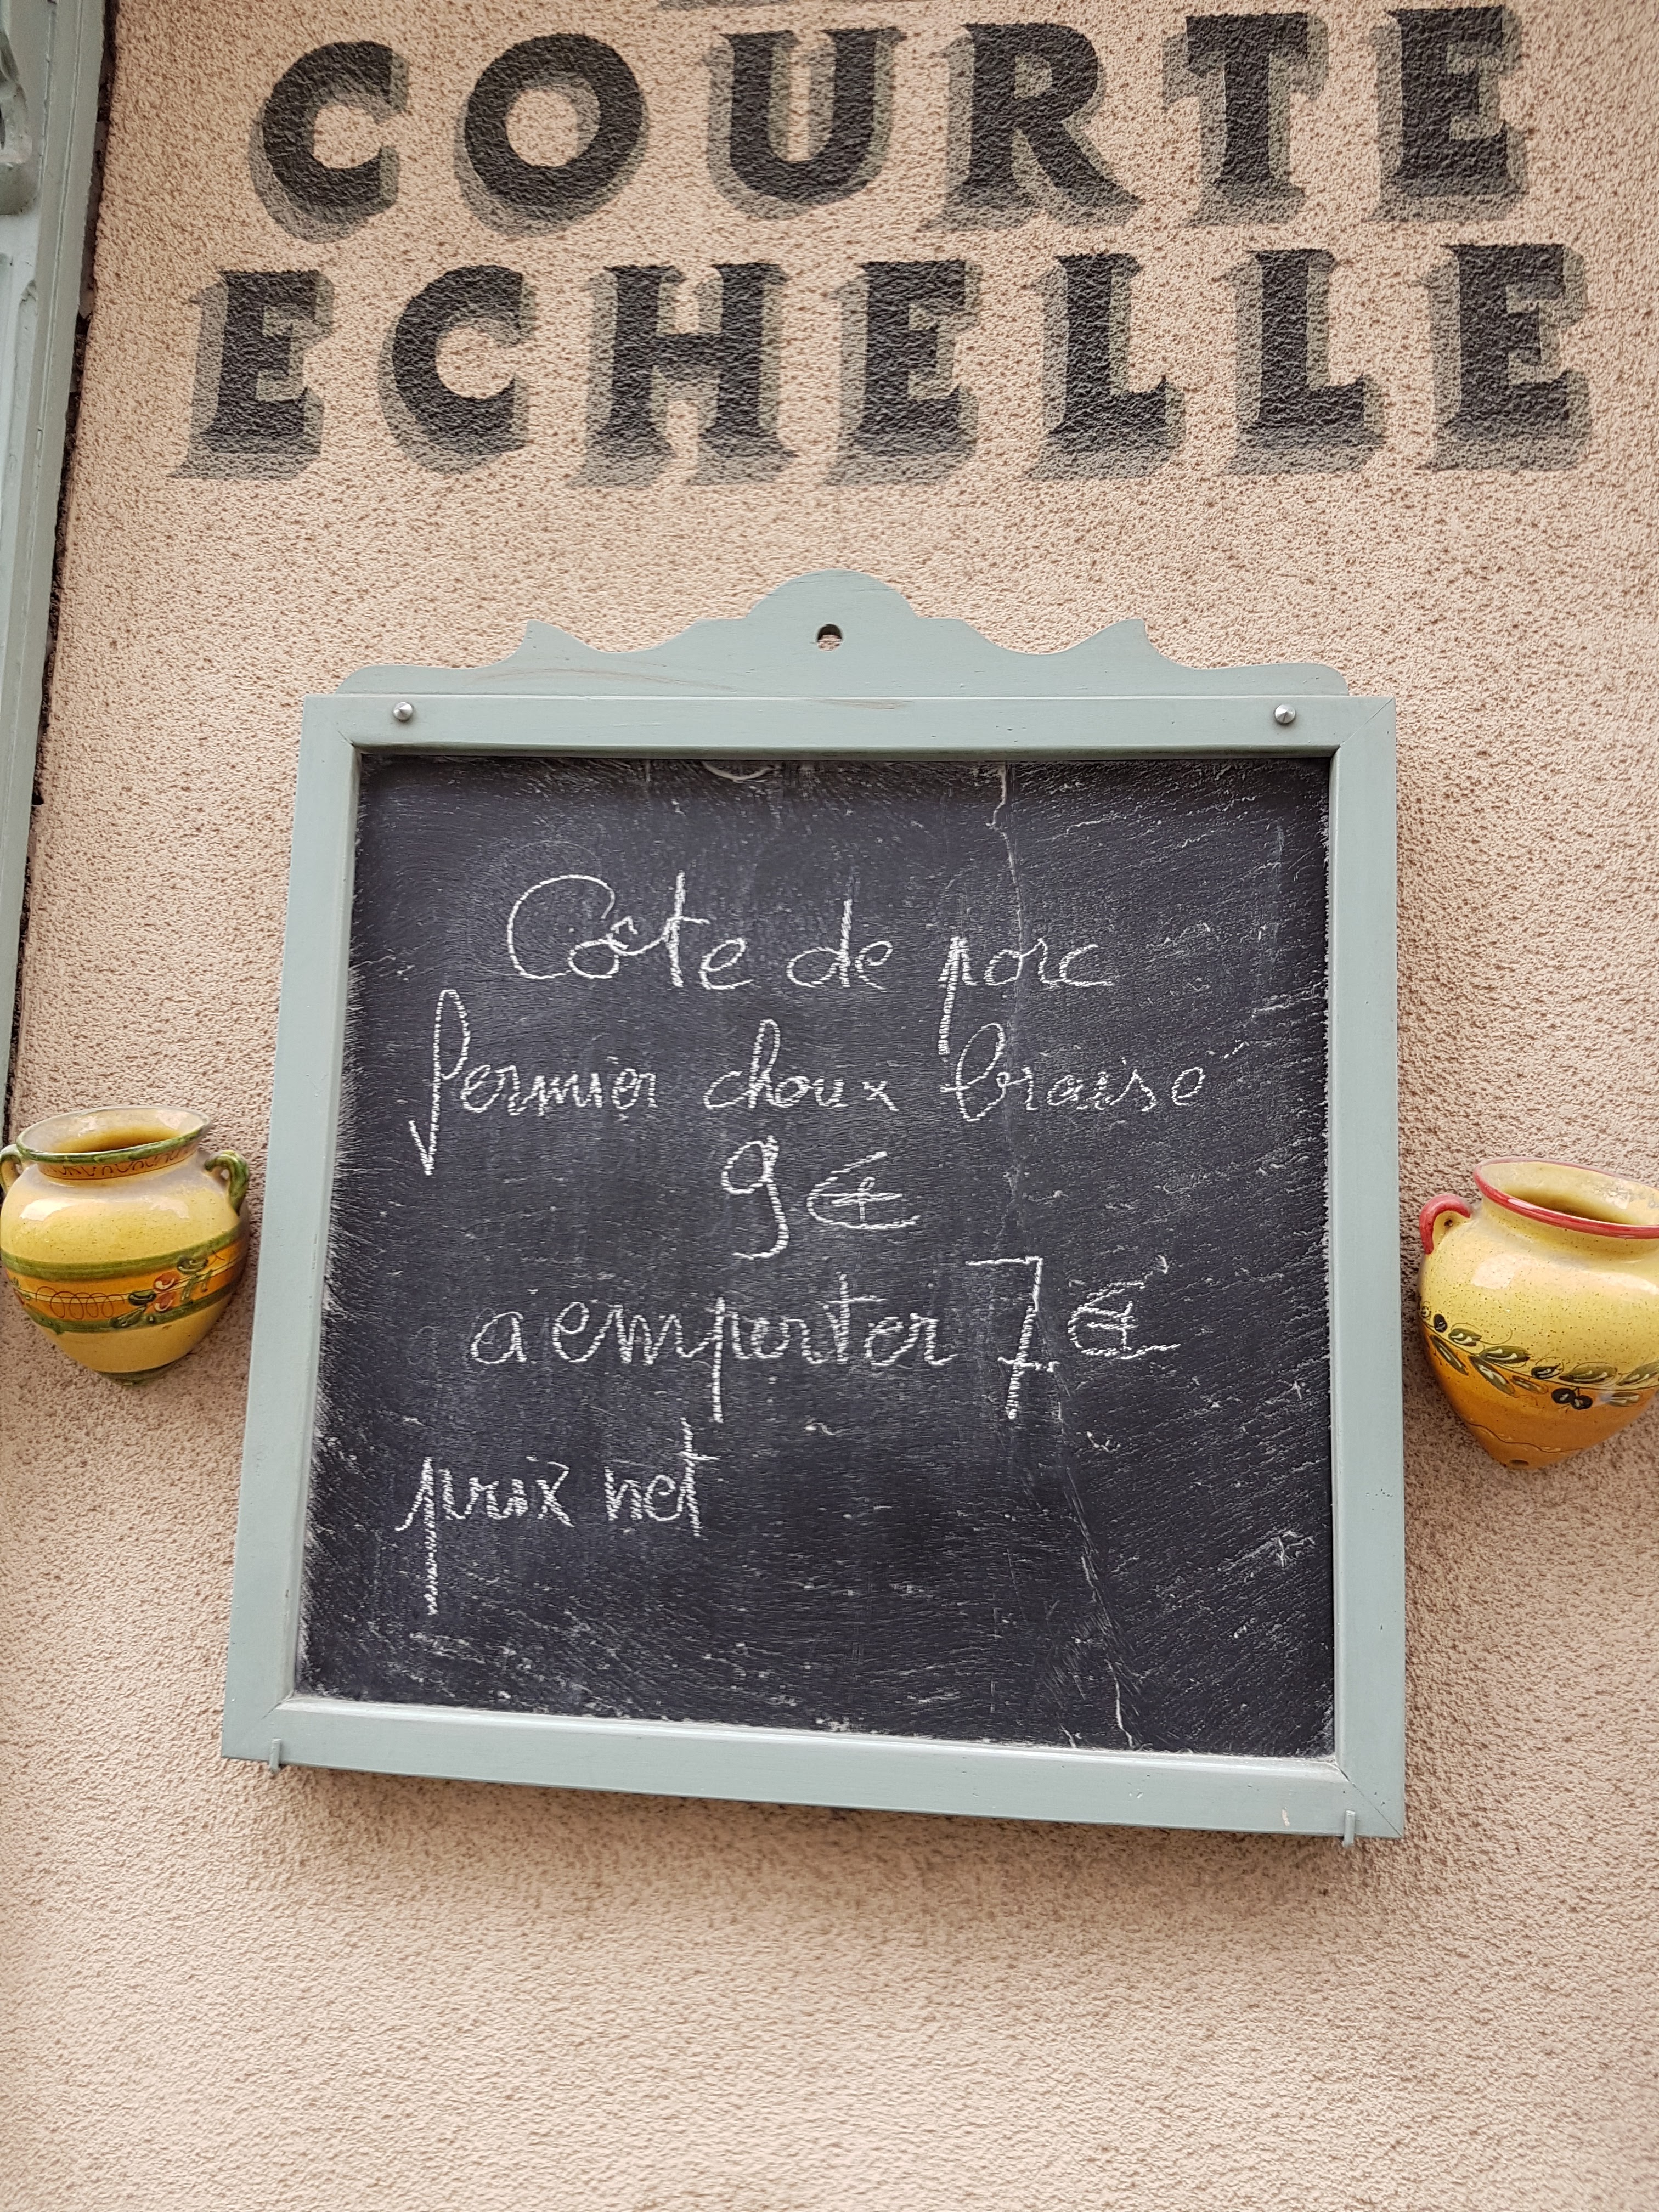 COURTE
ECHELLE
Côte de porc
fermier choux braise
9€
a emporter 7€
prix net